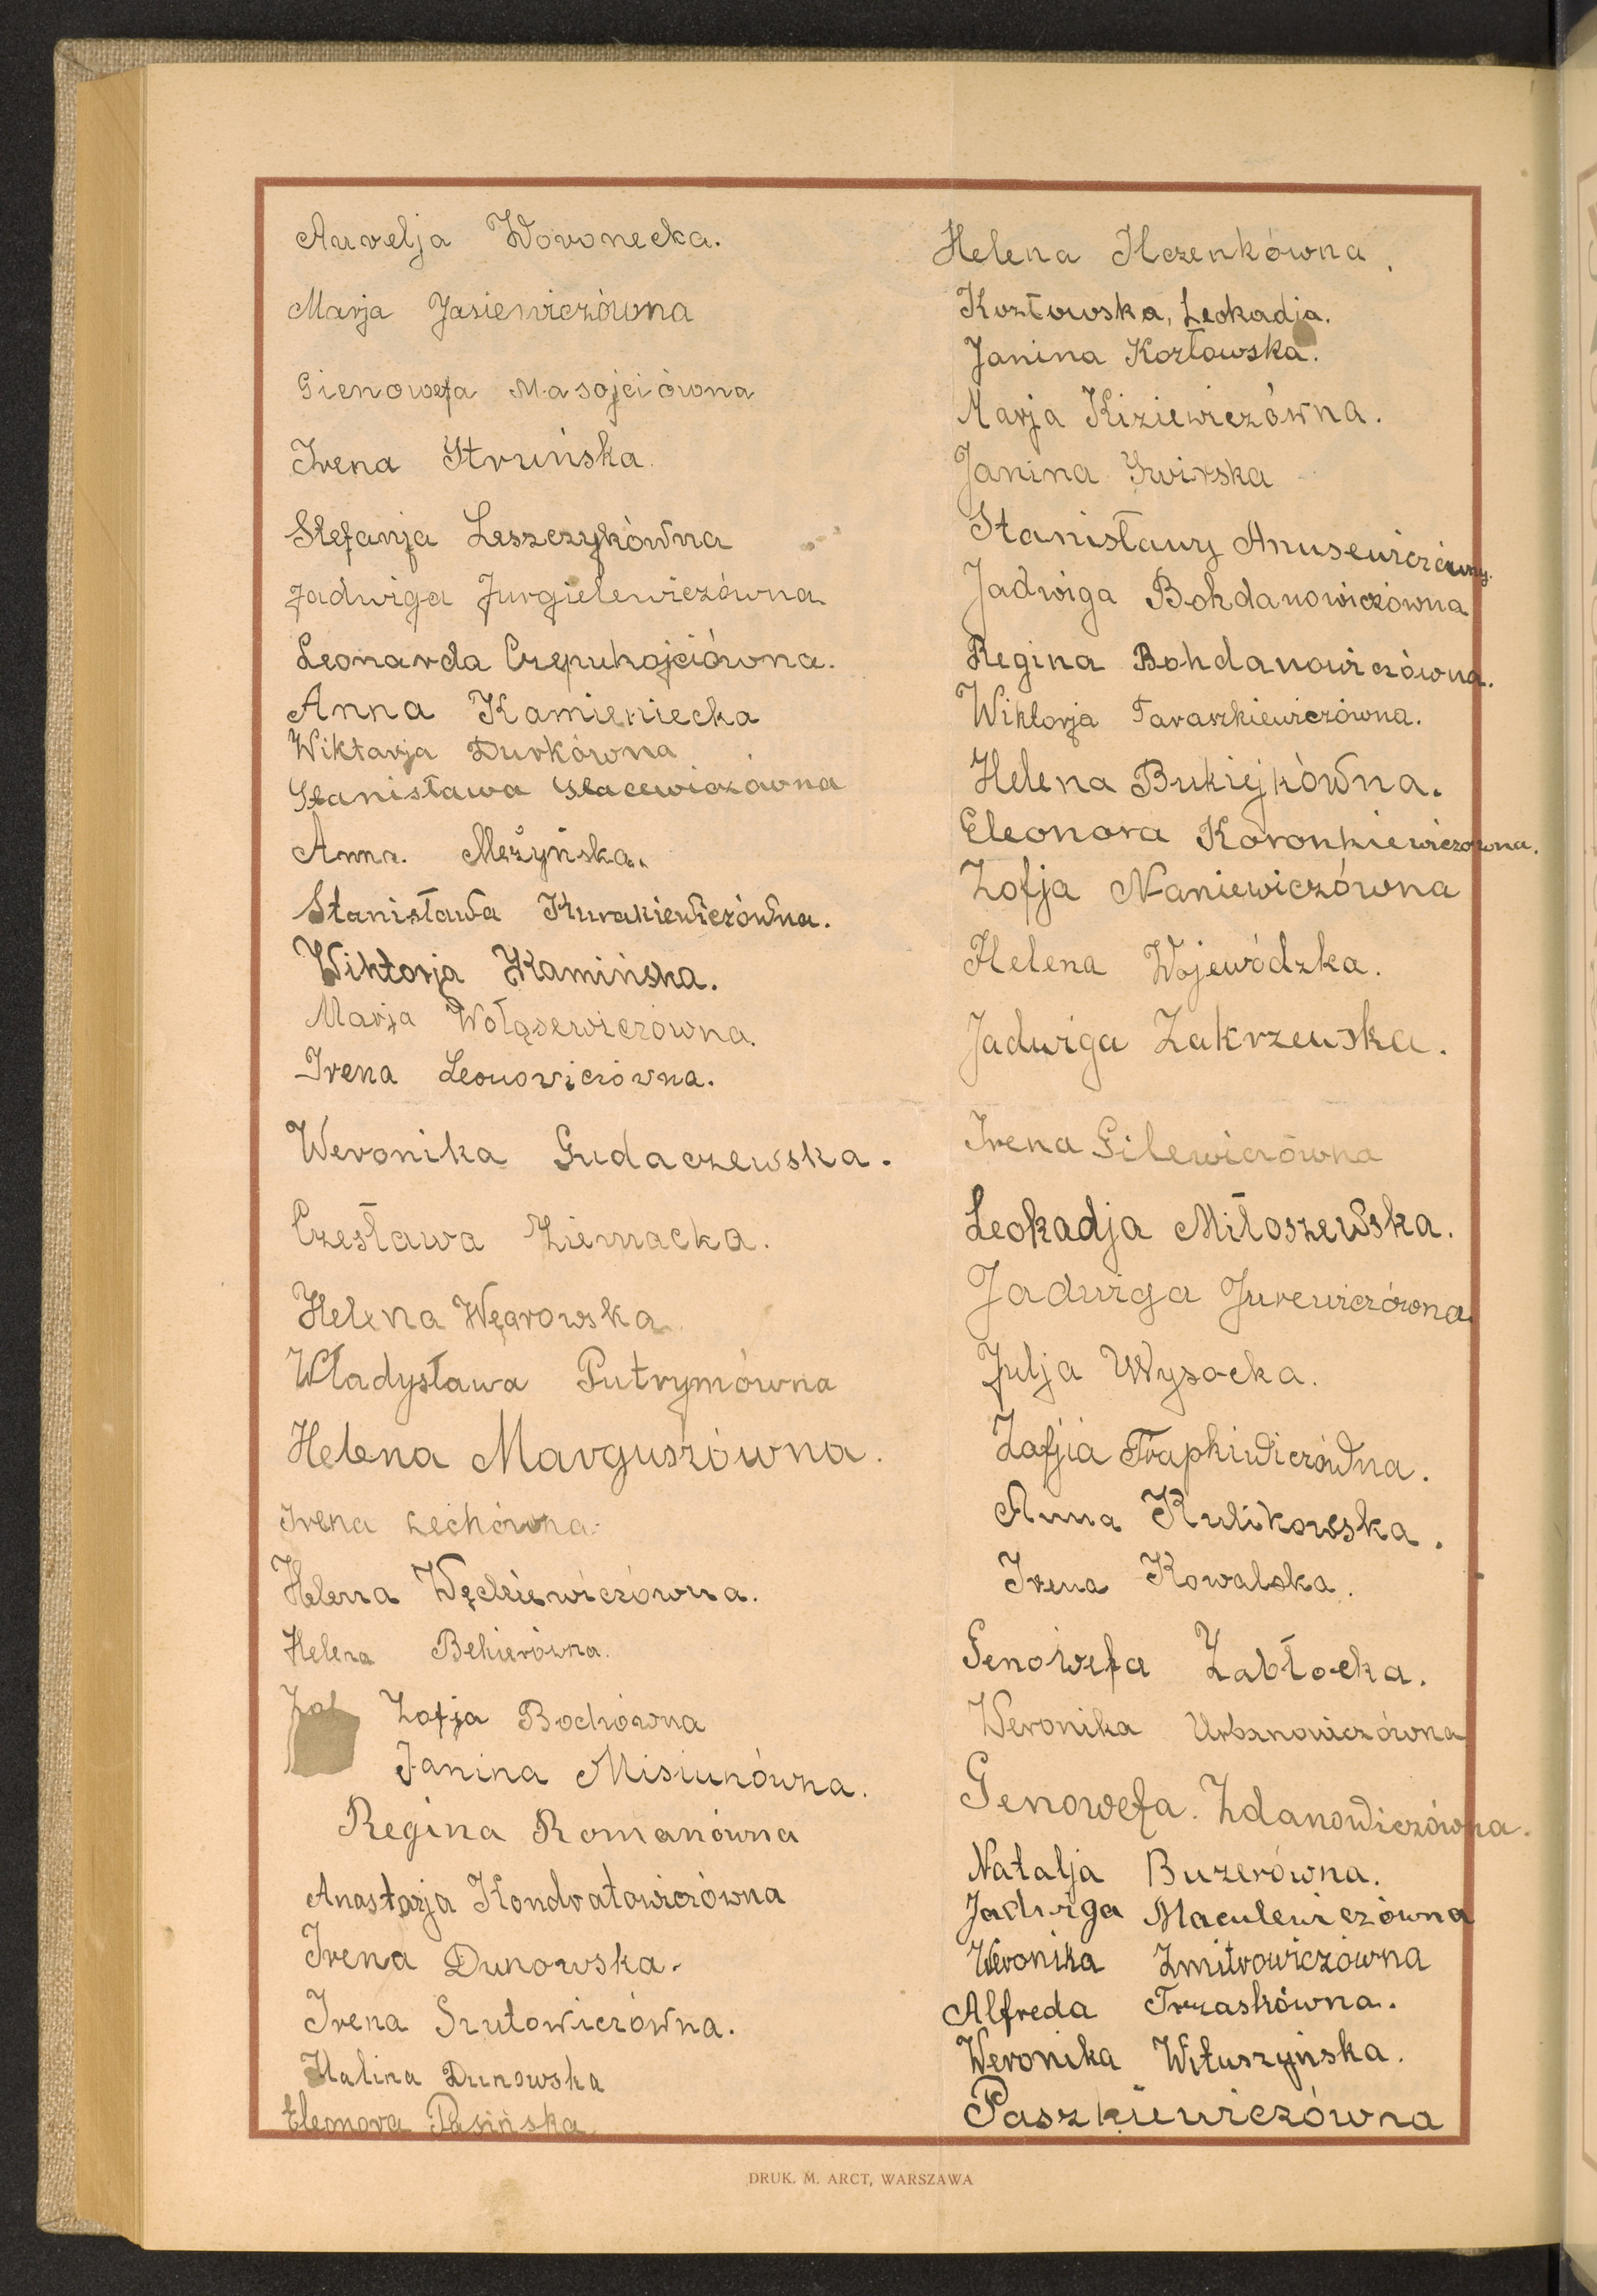 Aurelja Woronecka.
Marja Jasiewiczówna
Gienowefa Masojciówna
Irena Struńska.
Stefanja Leszczykówna
Jadwiga Jurgielewiczówna
Leonarda Czepukojciówna.
Anna Kamieniecka
Wiktarja Durkówna
Stanisława Stacewiczówna
Anna. Meżyńska.
Stanisława Kurakiewiczówna.
Wiktorja Kamińska.
Marja Wołąsewiczówna.
Irena Leonowiczówna.
Weronika Gudaczewska.
Czesława Ziemacka.
Helena Węgrowska
Władysława Putrymówna
Helena Marguszówna.
Irena Lechówna.
Helena Więckiewiczówna.
Helena Bekierówna.
Zof Zofja Bochówna
Janina Misiunówna.
Regina Romanówna
Anastazja Kondratowiczówna
Irena Dunowska.
Irena Szutowiczówna.
Halina Dunowska
Eleonora Pasińska
Helena Ilczenkówna.
Kozłowska, Leokadja.
Janina Kozłowska.
Marja Kiziewiczówna.
Janina Swirska
Stanisławy Anusewiczówny.
Jadwiga Bohdanowiczówna
Regina Bohdanowiczówna.
Wiktorja Taraszkiewiczówna.
Helena Bukiejkówna.
Eleonora Koronkiewiczówna.
Zofja Naniewiczówna
Helena Wojewódzka.
Jadwiga Zakrzewska.
Irena Gilewiczówna
Leokadja Miłoszewska.
Jadwiga Jurewiczówna.
Julja Wysocka.
Zofjia Trapkiwiczówna.
Anna Kulikowska.
Irena Kowalska.
Genowefa Zabłocka.
Weronika Urbanowiczówna
Genowefa. Zdanowiczówna.
Natalja Buzerówna.
Jadwiga Maculewiczówna
Weronika Zmitrowiczówna
Alfreda Trzaskówna.
Weronika Wituszyńska.
Paszkiewiczówna
DRUK. M. ARCT, WARSZAWA